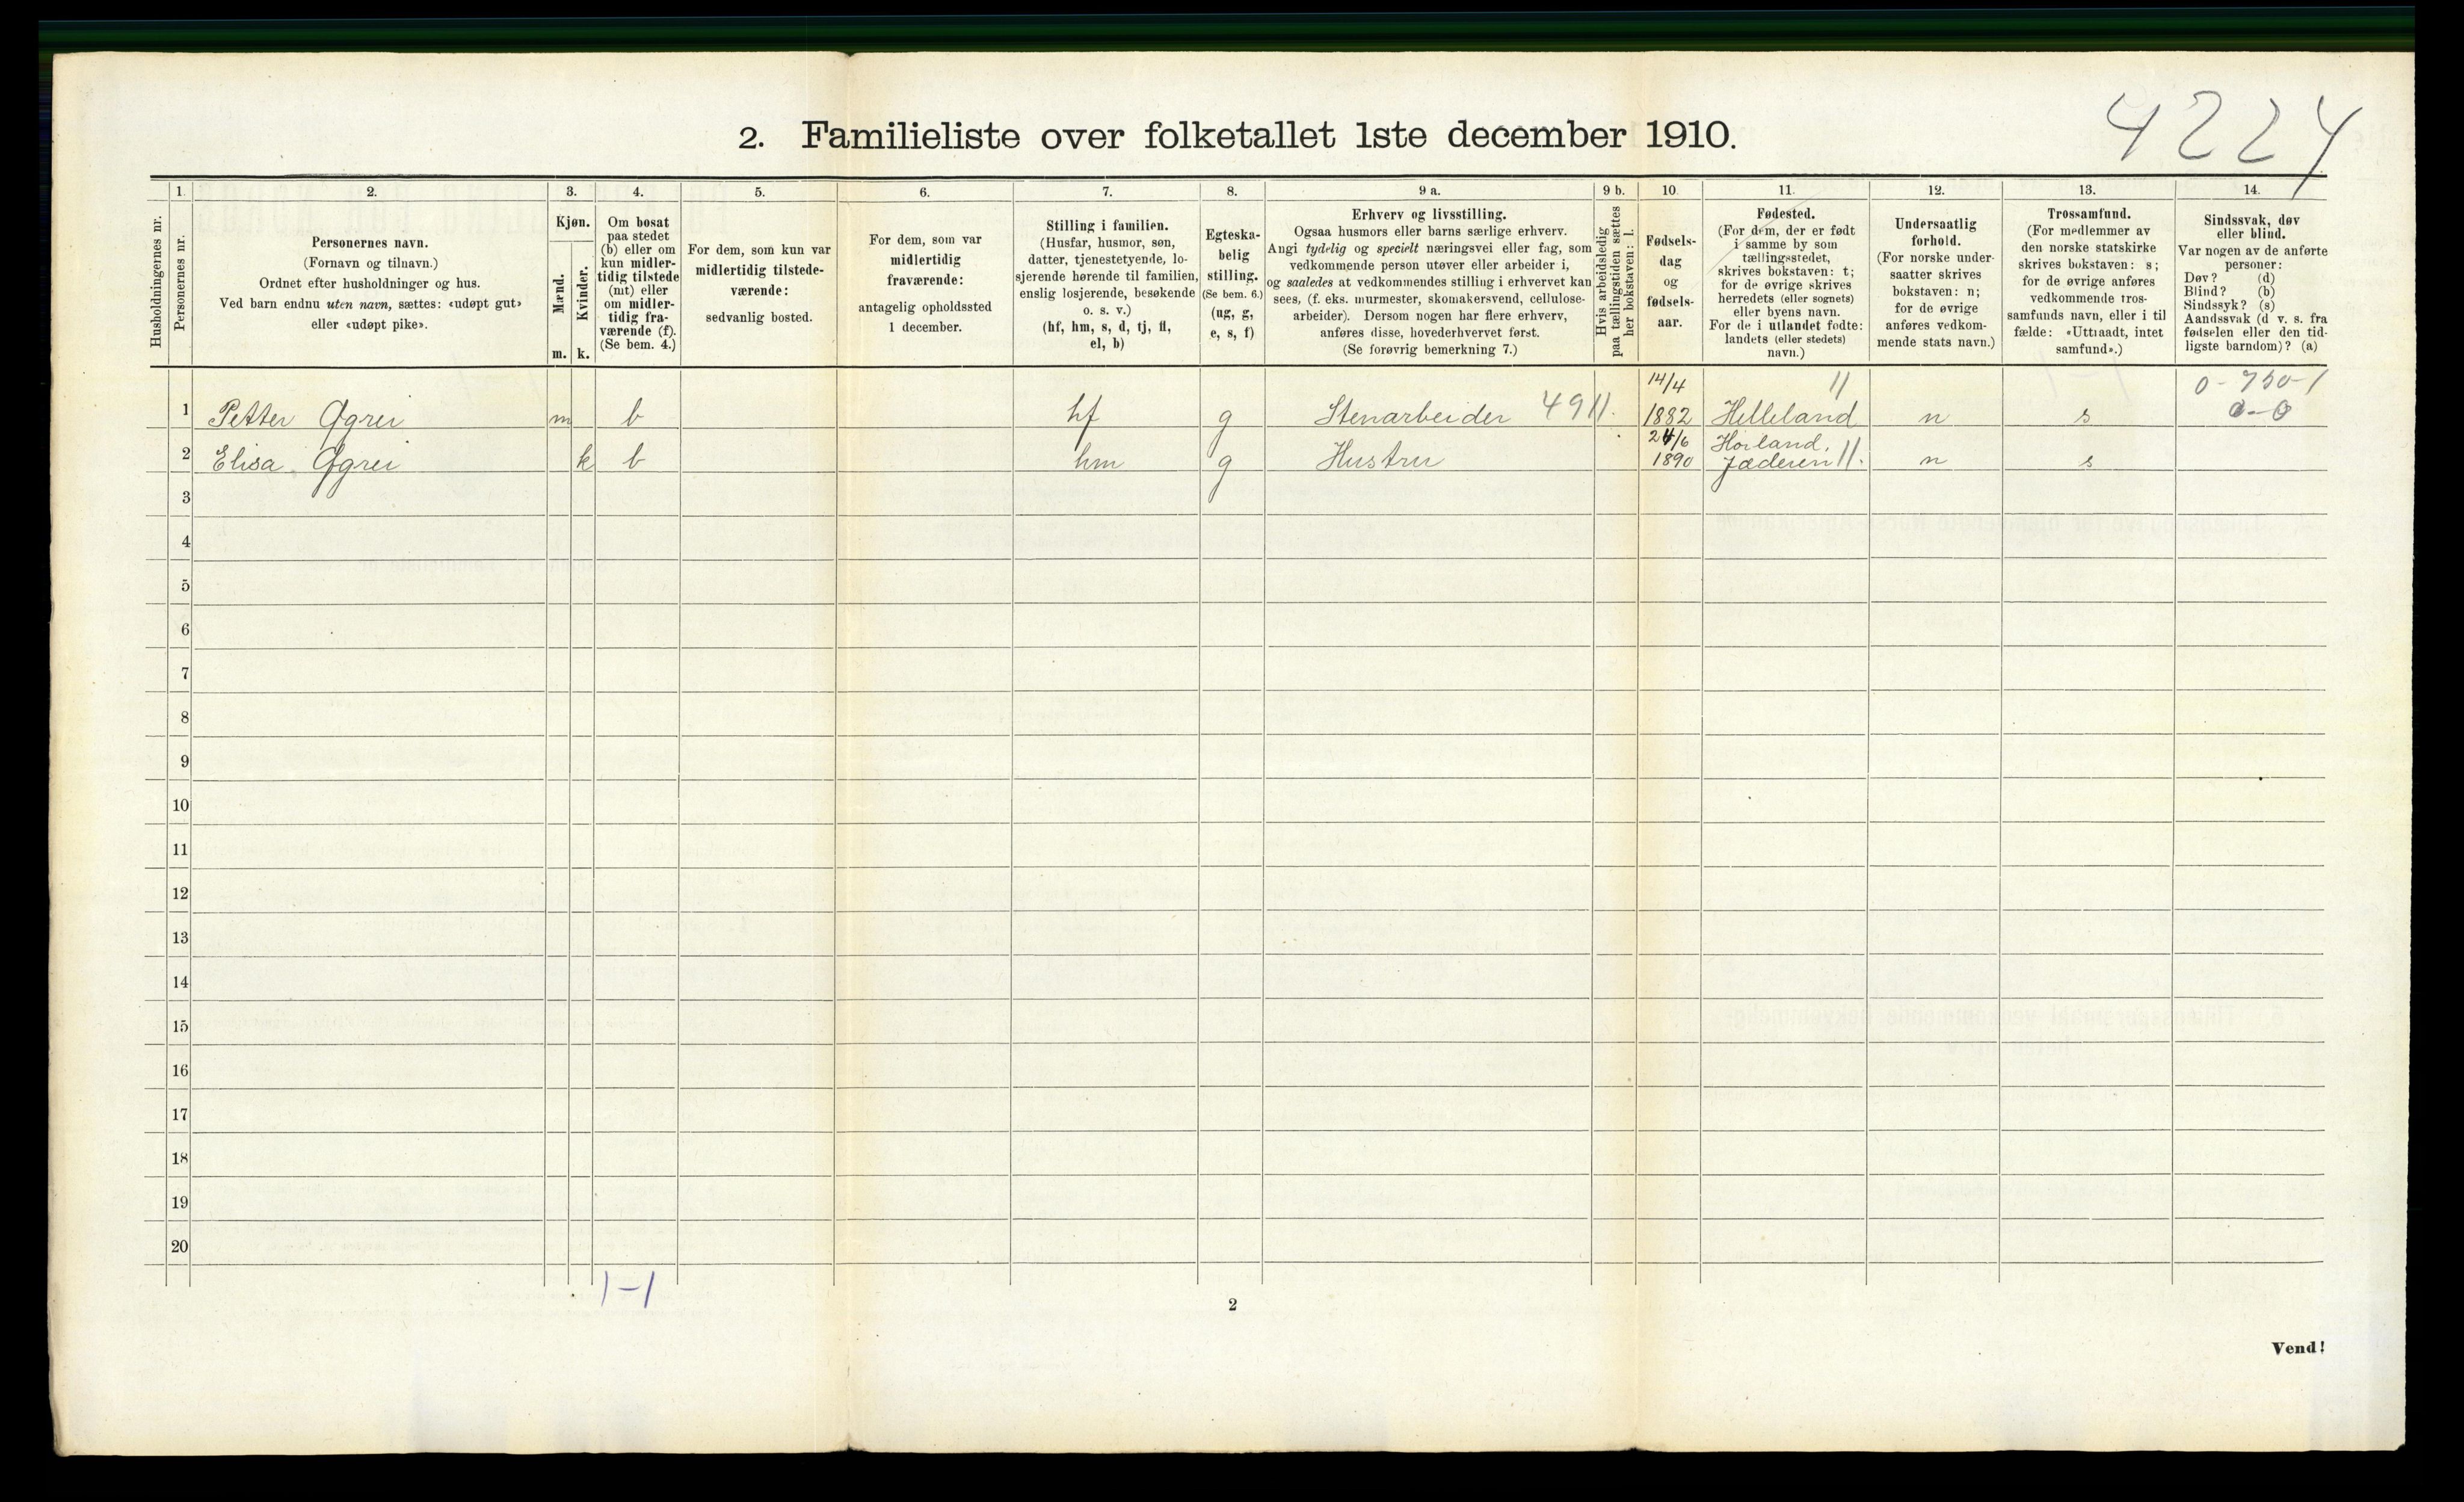 4224
2. Familieliste over folketallet 1ste december 1910.
Husholdningernes nr.
1.
Personernes nr.
2.
Personernes navn.
(Fornavn og tilnavn.)
Ordnet efter husholdninger og hus.
Ved barn endnu uten navn, sættes: «udøpt gut»
eller «udøpt pike».
3.
Kjøn.
Mænd.
Kvinder.
m. k.
4.
Om bosat
paa stedet
(b) eller om
kun midler-
tidig tilstede
(mt) eller
om midler-
tidig fra-
værende (f).
(Se bem. 4.)
5.
For dem, som kun var
midlertidig tilstede-
værende:
sedvanlig bosted.
6.
For dem, som var
midlertidig
fraværende:
antagelig opholdssted
1 december.
7.
Stilling i familien.
(Husfar, husmor, søn,
datter, tjenestetyende, lo-
sjerende hørende til familien,
enslig losjerende, besøkende
o. s. v.)
(hf, hm, s, d, tj, fl,
el, b)
8.
Egteska-
belig
stilling.
(Se bem. 6.)
(ug, g,
e, s, f)
9 a.
Erhverv og livsstilling.
Ogsaa husmors eller barns særlige erhverv.
Angi tydelig og specielt næringsvei eller fag, som
vedkommende person utøver eller arbeider i,
og saaledes at vedkommendes stilling i erhvervet kan
sees, (f. eks. murmester, skomakersvend, cellulose-
arbeider). Dersom nogen har flere erhverv,
anføres disse, hovederhvervet først.
(Se forøvrig bemerkning 7.)
9 b.
Hvis arbeidsledig
paa tællingstiden sættes
her bokstaven: l.
10.
Fødsels-
dag
og
fødsels-
aar.
11.
Fødested.
(For dem, der er født
i samme by som
tællingsstedet,
skrives bokstaven: t;
for de øvrige skrives
herredets (eller sognets)
eller byens navn.
For de i utlandet fødte:
landets (eller stedets)
navn.)
12.
Undersaatlig
forhold.
(For norske under-
saatter skrives
bokstaven: n;
for de øvrige
anføres vedkom-
mende stats navn.)
13.
Trossamfund.
(For medlemmer av
den norske statskirke
skrives bokstaven: s;
for de øvrige anføres
vedkommende tros-
samfunds navn, eller i til
fælde: «Uttraadt, intet
samfund».)
14.
Sindssvak, døv
eller blind.
Var nogen av de anførte
personer:
Døv? (d)
Blind? (b)
Sindssyk? (s)
Aandssvak (d v. s. fra
fødselen eller den tid-
ligste barndom)? (a)
14/4 11 0-750-1
1 Petter Øgrei m b hf g Stenarbeider 4911. 1882 Helleland n s 0-0
24/6 Høiland,
2 Elisa Øgrei k b hm g Hustru 1890 Jæderen 11. n s
3
4
5
6
7
8
9
10
11
12
13
14
15
16
17
18
19
20
1-1
2
Vend!